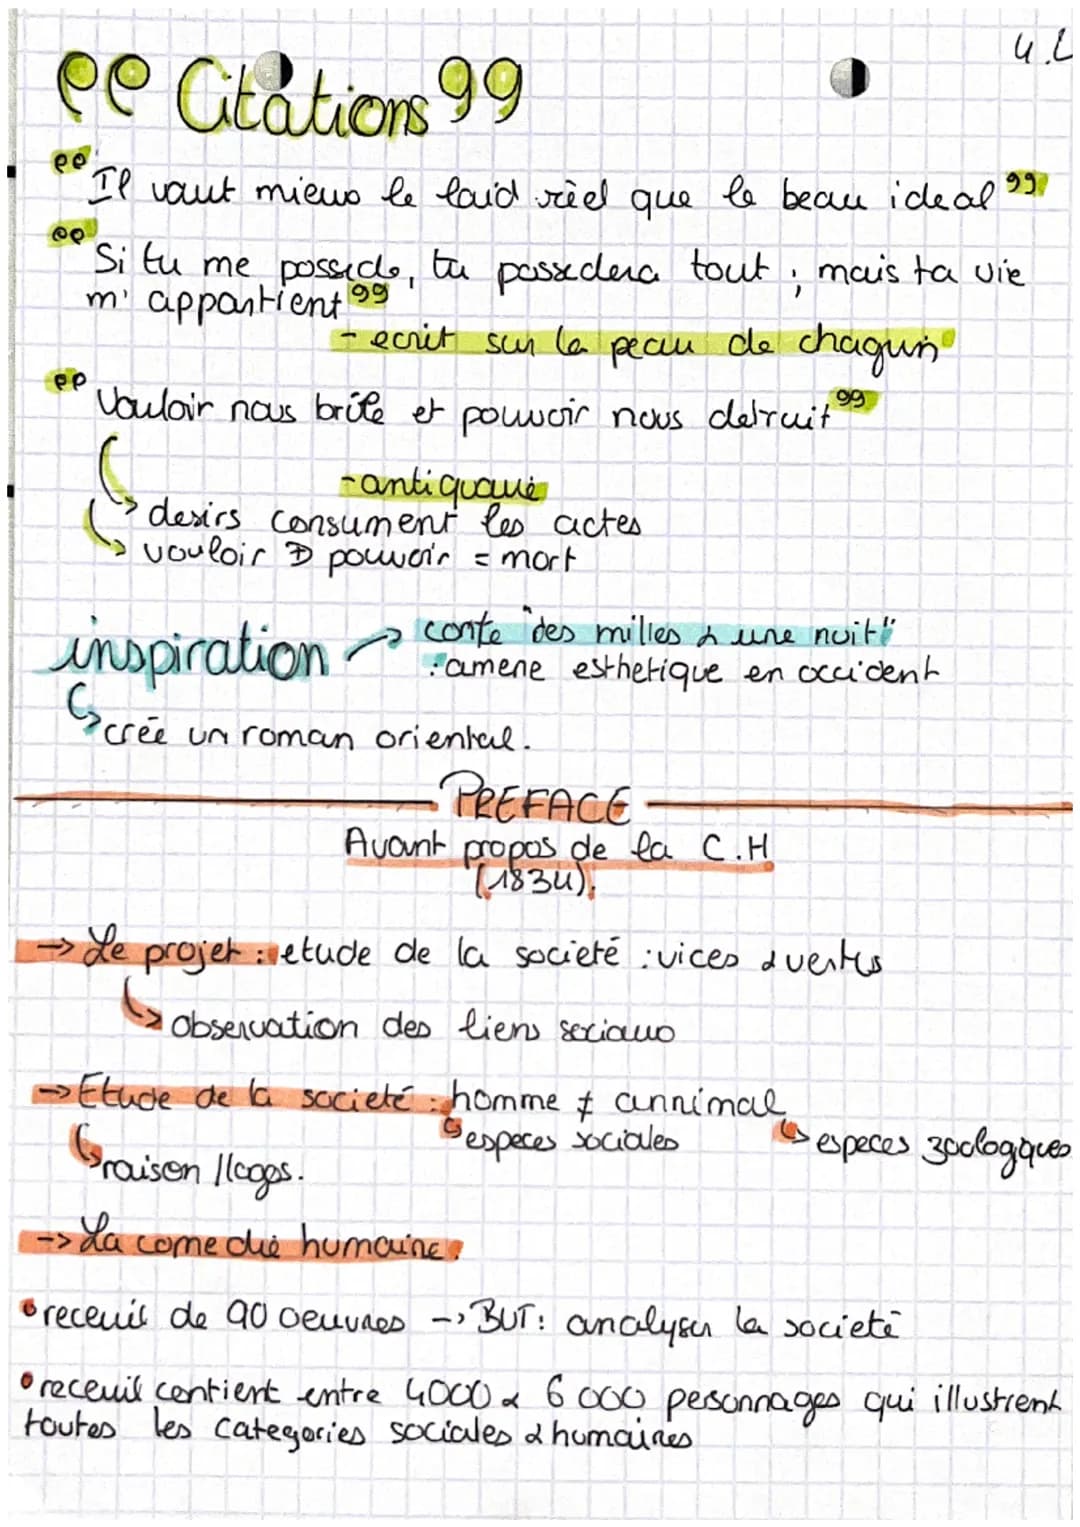 4.L
ee Citations 99
"Il vaut mieux le laid réel que le beau ideal"
"Si tu me possede, tu possedera tout, mais ta vie
m'appartient"
- ecrit sur la peau de chagrin
"Vouloir nous brûle et pouvoir nous detruit"
- antiquaire
desirs consument les actes
vouloir pouvoir = mort
inspiration → conte "des milles & une nuit"
amene esthetique en occident
crée un roman oriental.
PREFACE
Avant propos de la C.H
(1834).
→ Le projet : etude de la societé : vices & vertus
observation des liens sociaux
→ Etude de la societé : homme ≠ annimal
especes sociales especes zoologiques
raison // logos.
→ La comedie humaine:
• receuil de 90 oeuvres → BUT: analyser la societé
• receuil contient entre 4000 & 6 000 personnages qui illustrent
toutes les categories sociales & humaines